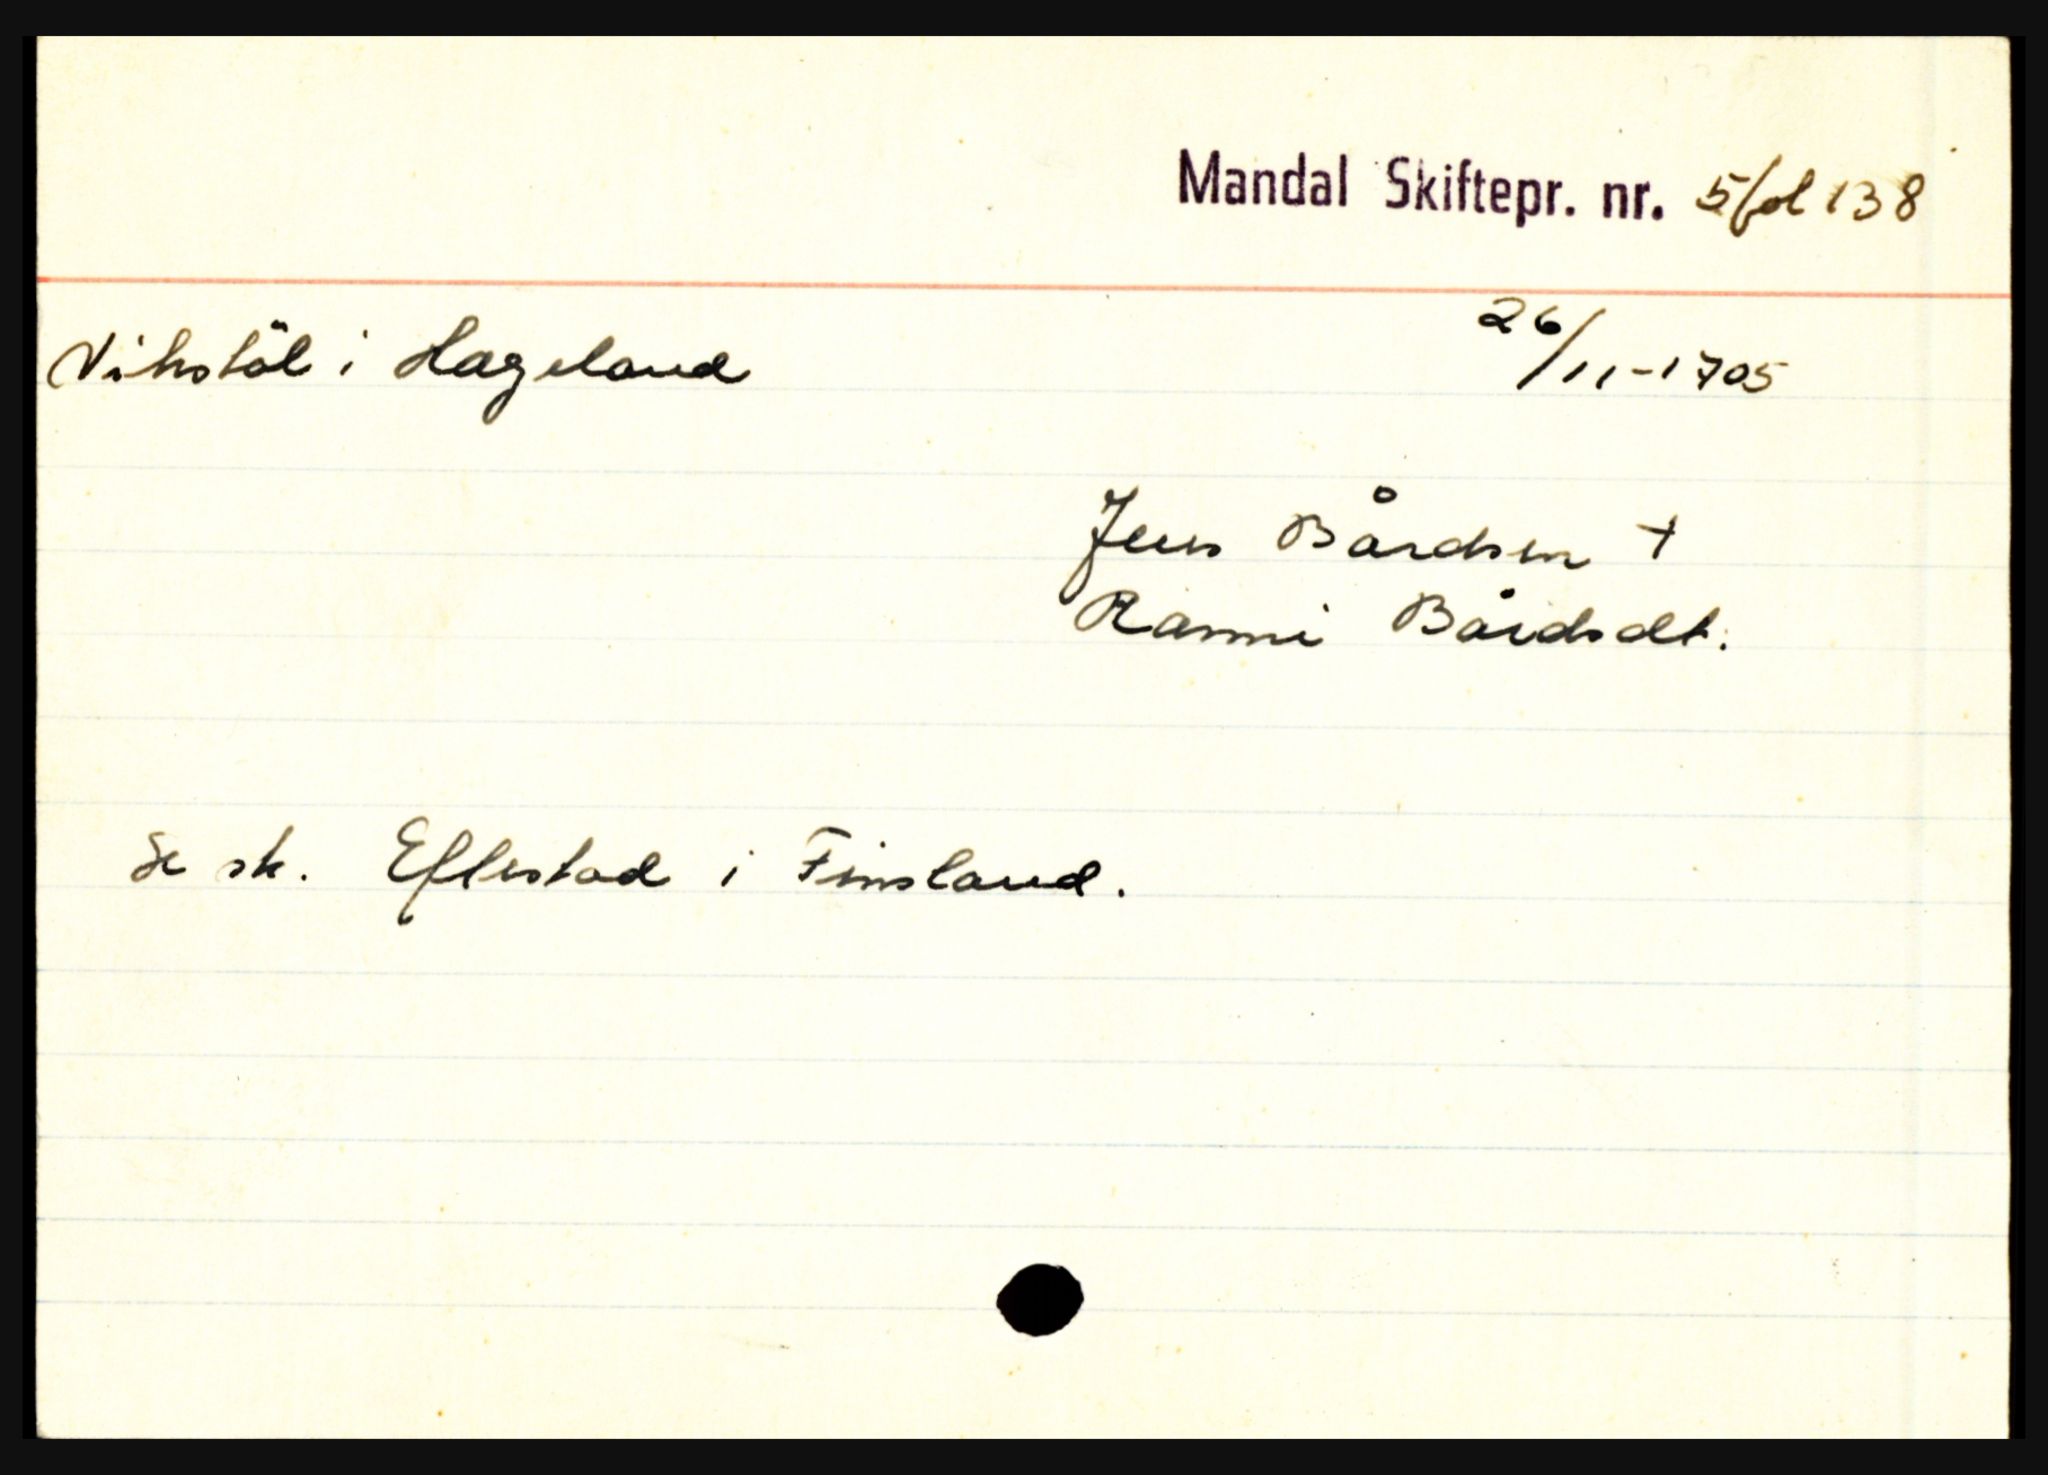 Mandal Skiftepr. nr. 5/fol 138
Vikstöl i Hageland 26/11-1705
Jens Bårdsen +
Ranni Bårdsdt.
Se sk. Eftestad i Finsland.